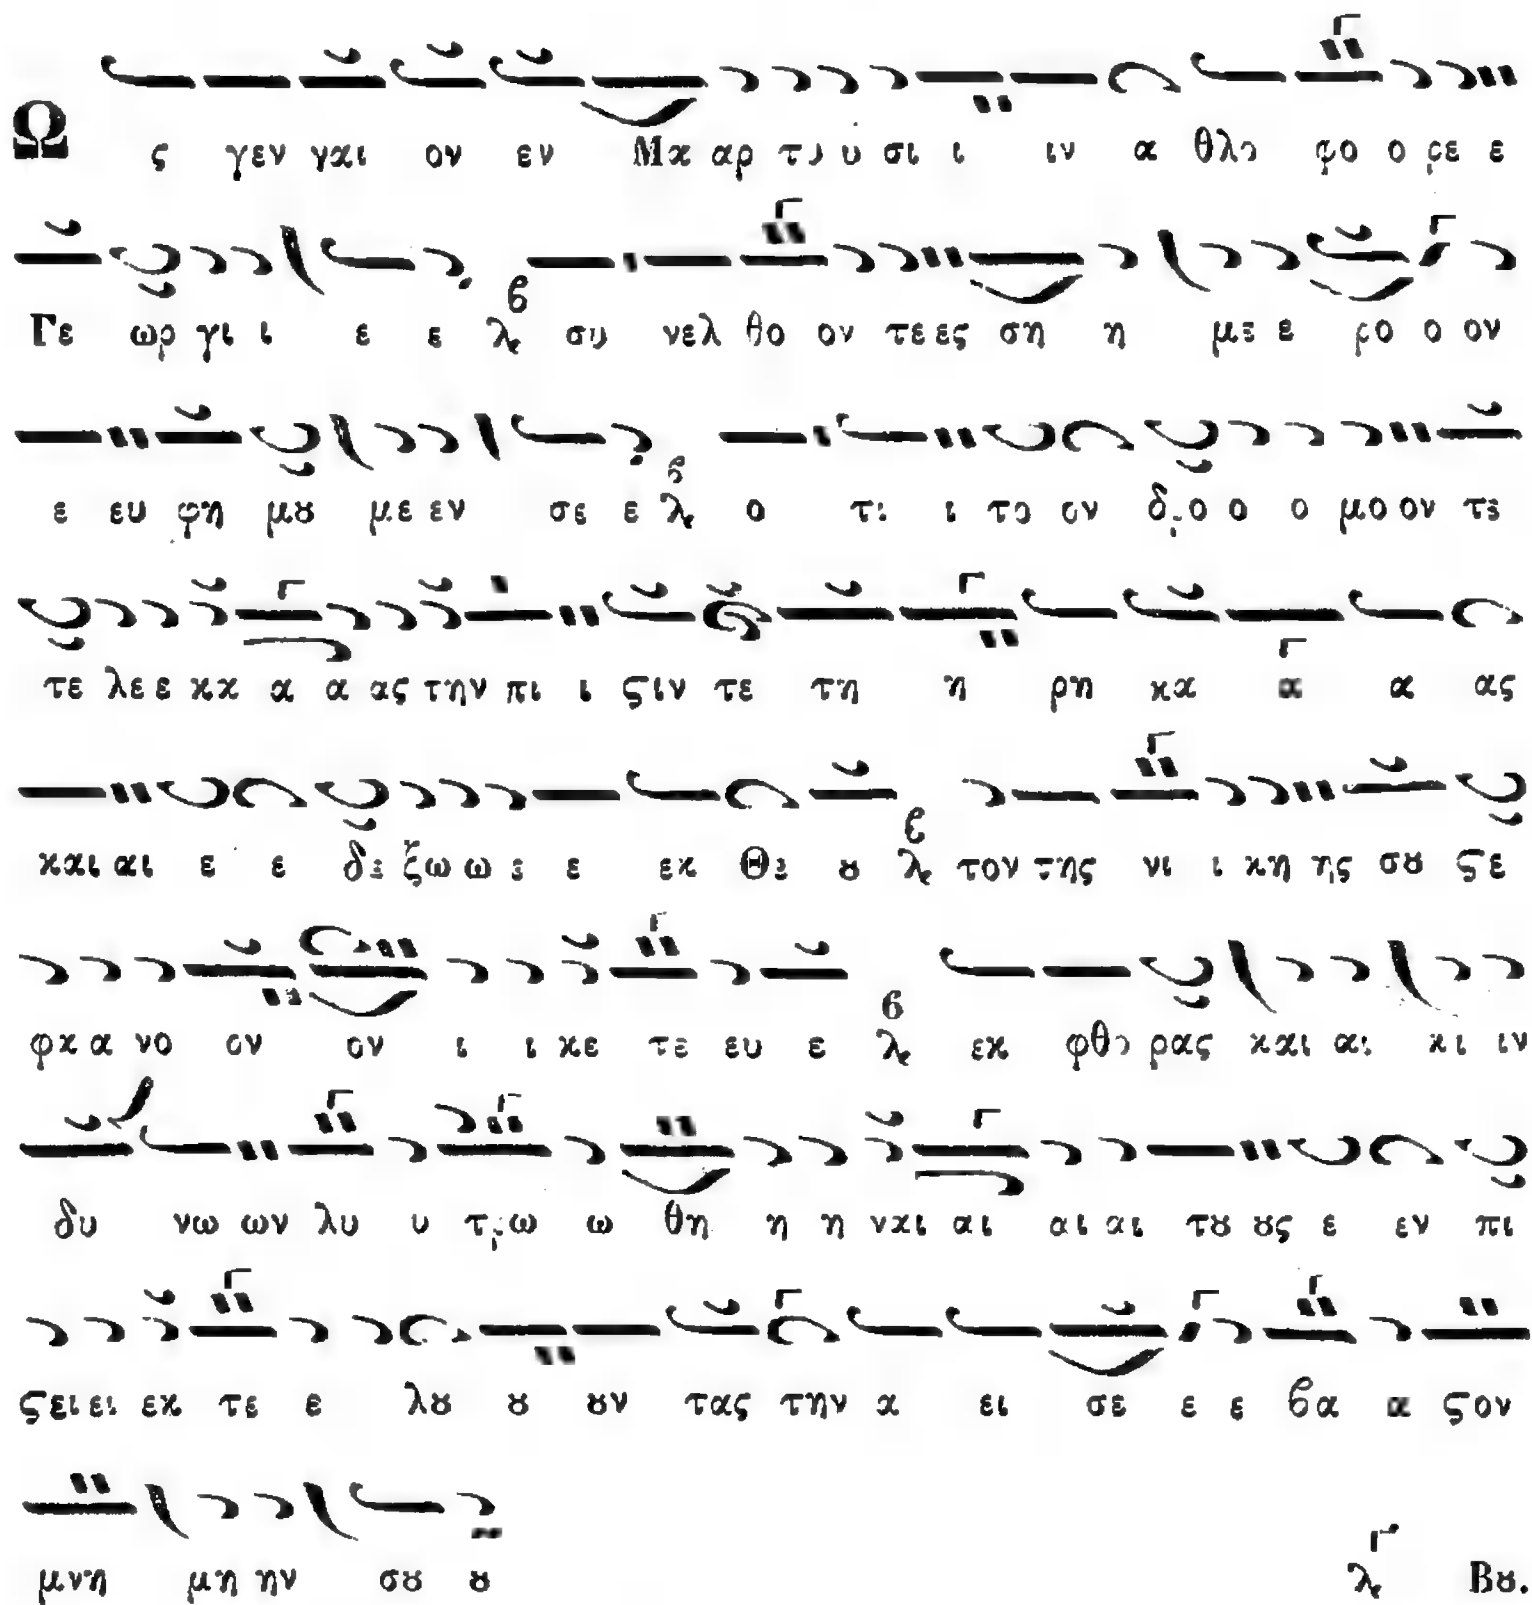 Ω ς γεν ναι ον εν Μα αρ τυ υ σι ι ιν α θλο φο ο ρε ε
Γε ωρ γι ι ε ε λε β συ νελ θο ον τε ες ση η με ε ρο ο ον
ε ευ φη μȣ με εν σε ε λε β ο τι ι το ον δρο ο ο μο ον τε
τε λε ε κα α α ας την πι ι ϛιν τε τη η ρη κα α α ας
και αι ε ε δε ξω ω ε ε εκ Θε ȣ λε β τον της νι ι κη ης σȣ ϛε
φα α νο ον ον ι ι κε τε ευ ε λε β εκ φθο ρας και αι κι ιν
δυ νω ων λυ υ τρω ω θη η η ναι αι αι αι τȣ ȣς ε εν πι
ϛει ει εκ τε ε λȣ ȣ ȣν τας την α ει σε ε ε βα α ϛον
μνη μη ην σȣ ȣ λε Γ Βȣ.